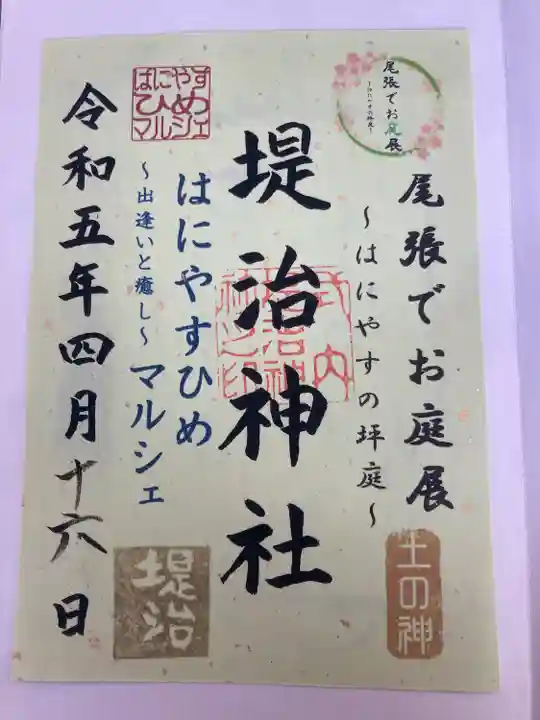 尾張でお庭展
尾張でお庭展
~はにやすの坪庭~
土の神
堤治神社
式内
堤治神
社之印
はにやすひめ
マルシェ
はにやすひめ
~出逢いと癒し~
マルシェ
堤治
令和五年四月十六日